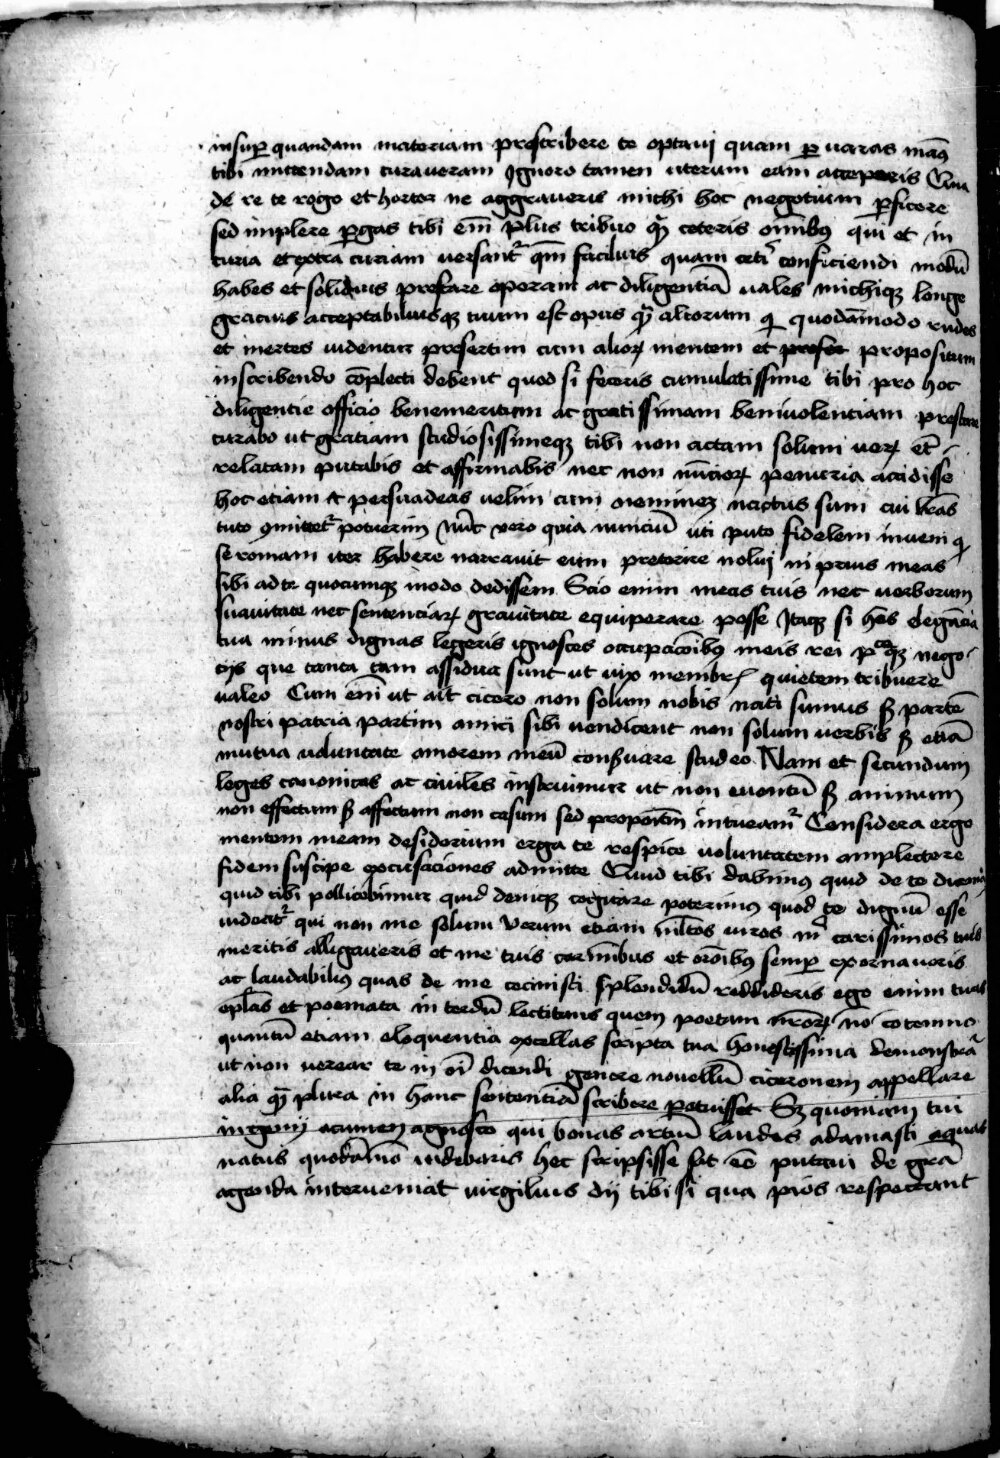 insup quandam materiam prescribere te optavi quam p varias man9
tibi mittendam curaveram Ignoro tamen utrum eam acceperis Qua
de re te rogo et hortor ne aggraveris michi hoc negotium pficere
sed implere pgas tibi em plus tribuo qm ceteris omib9 qui et in
curia et extra curiam versant qm facilius quam ceti conficiendi modu
habes et solidius prestare operam ac diligentia vales michiqz longe
gracius acceptabiliusqz tuum est opus qm aliorum q quodamodo rudes
et inertes videntur presertim cum alior mentem et propositum
inscribendo coplecti debent quod si feceris cumulatissime tibi pro hoc
diligentie officio benemeritum ac gratissimam benivolentiam prestare
curabo ut gratiam studiosissimeqz tibi non actam solum ver et
relatam putabis et affirmabis nec non nucior penuria accidisse
hoc etiam persuadeas velim cum neminez nactus sum cui lras
tuto 9mitter potuerim Nuc vero quia nunciu uti puto fidelem inveni q
se romam iter habere narravit eum preterire nolui ni prius meas
sibi ad te quocumqz modo dedissem Scio enim meas tuis nec verborum
suavitate nec sentenciar gravitate equiperare posse Itaqz si has elegacia
tua minus dignas legeris ignosces occupacoib9 meis rei p qz nego
cijs que tanta tam assidua sunt ut vix membr quietem tribuere
valeo Cum em ut ait cicero non solum nobis nati sumus s parte
nostri patria partim amici sibi vendicent non solum verbis s etia
mutua voluntate amorem meu conservare studeo Nam et secundum
leges canonicas ac civiles instruimur ut non eventu s animum
non effectum s affectum non casum sed intueam Considera ergo
mentem meam desiderium erga te respice voluntatem amplectere
fidem suscipe excusaciones admitte Quid tibi dabim9 quid de te dicem9
quid tibi pollicebimur quid deniqz cogitare poterim9 quod te dignu esse
videat qui non me solum verum etiam mltos viros m carissimos tuis
meritis alligaveris et me tuis carmibus et oroib9 semp exornaveris
ac laudabilius quas de me cecinisti splendidu reddideris ego enim tuas
eplas et poemata in terdu lectitans quem poetam nror no cotemno
quantu etiam eloquentia excellas scripta tua honestissima demonstra
ut non verear te in oi dicendi genere novellu ciceronem appellare
alia qm plura in hanc sententia scribere potuisset Sz quoniam tui
ingenij acumen agnosco qui bonas artiu laudes adamasti
natus quodamo videbaris hec scripsisse sat ee putavi de gra
agenda interveniat virgilius dij tibi si qua pios respectant